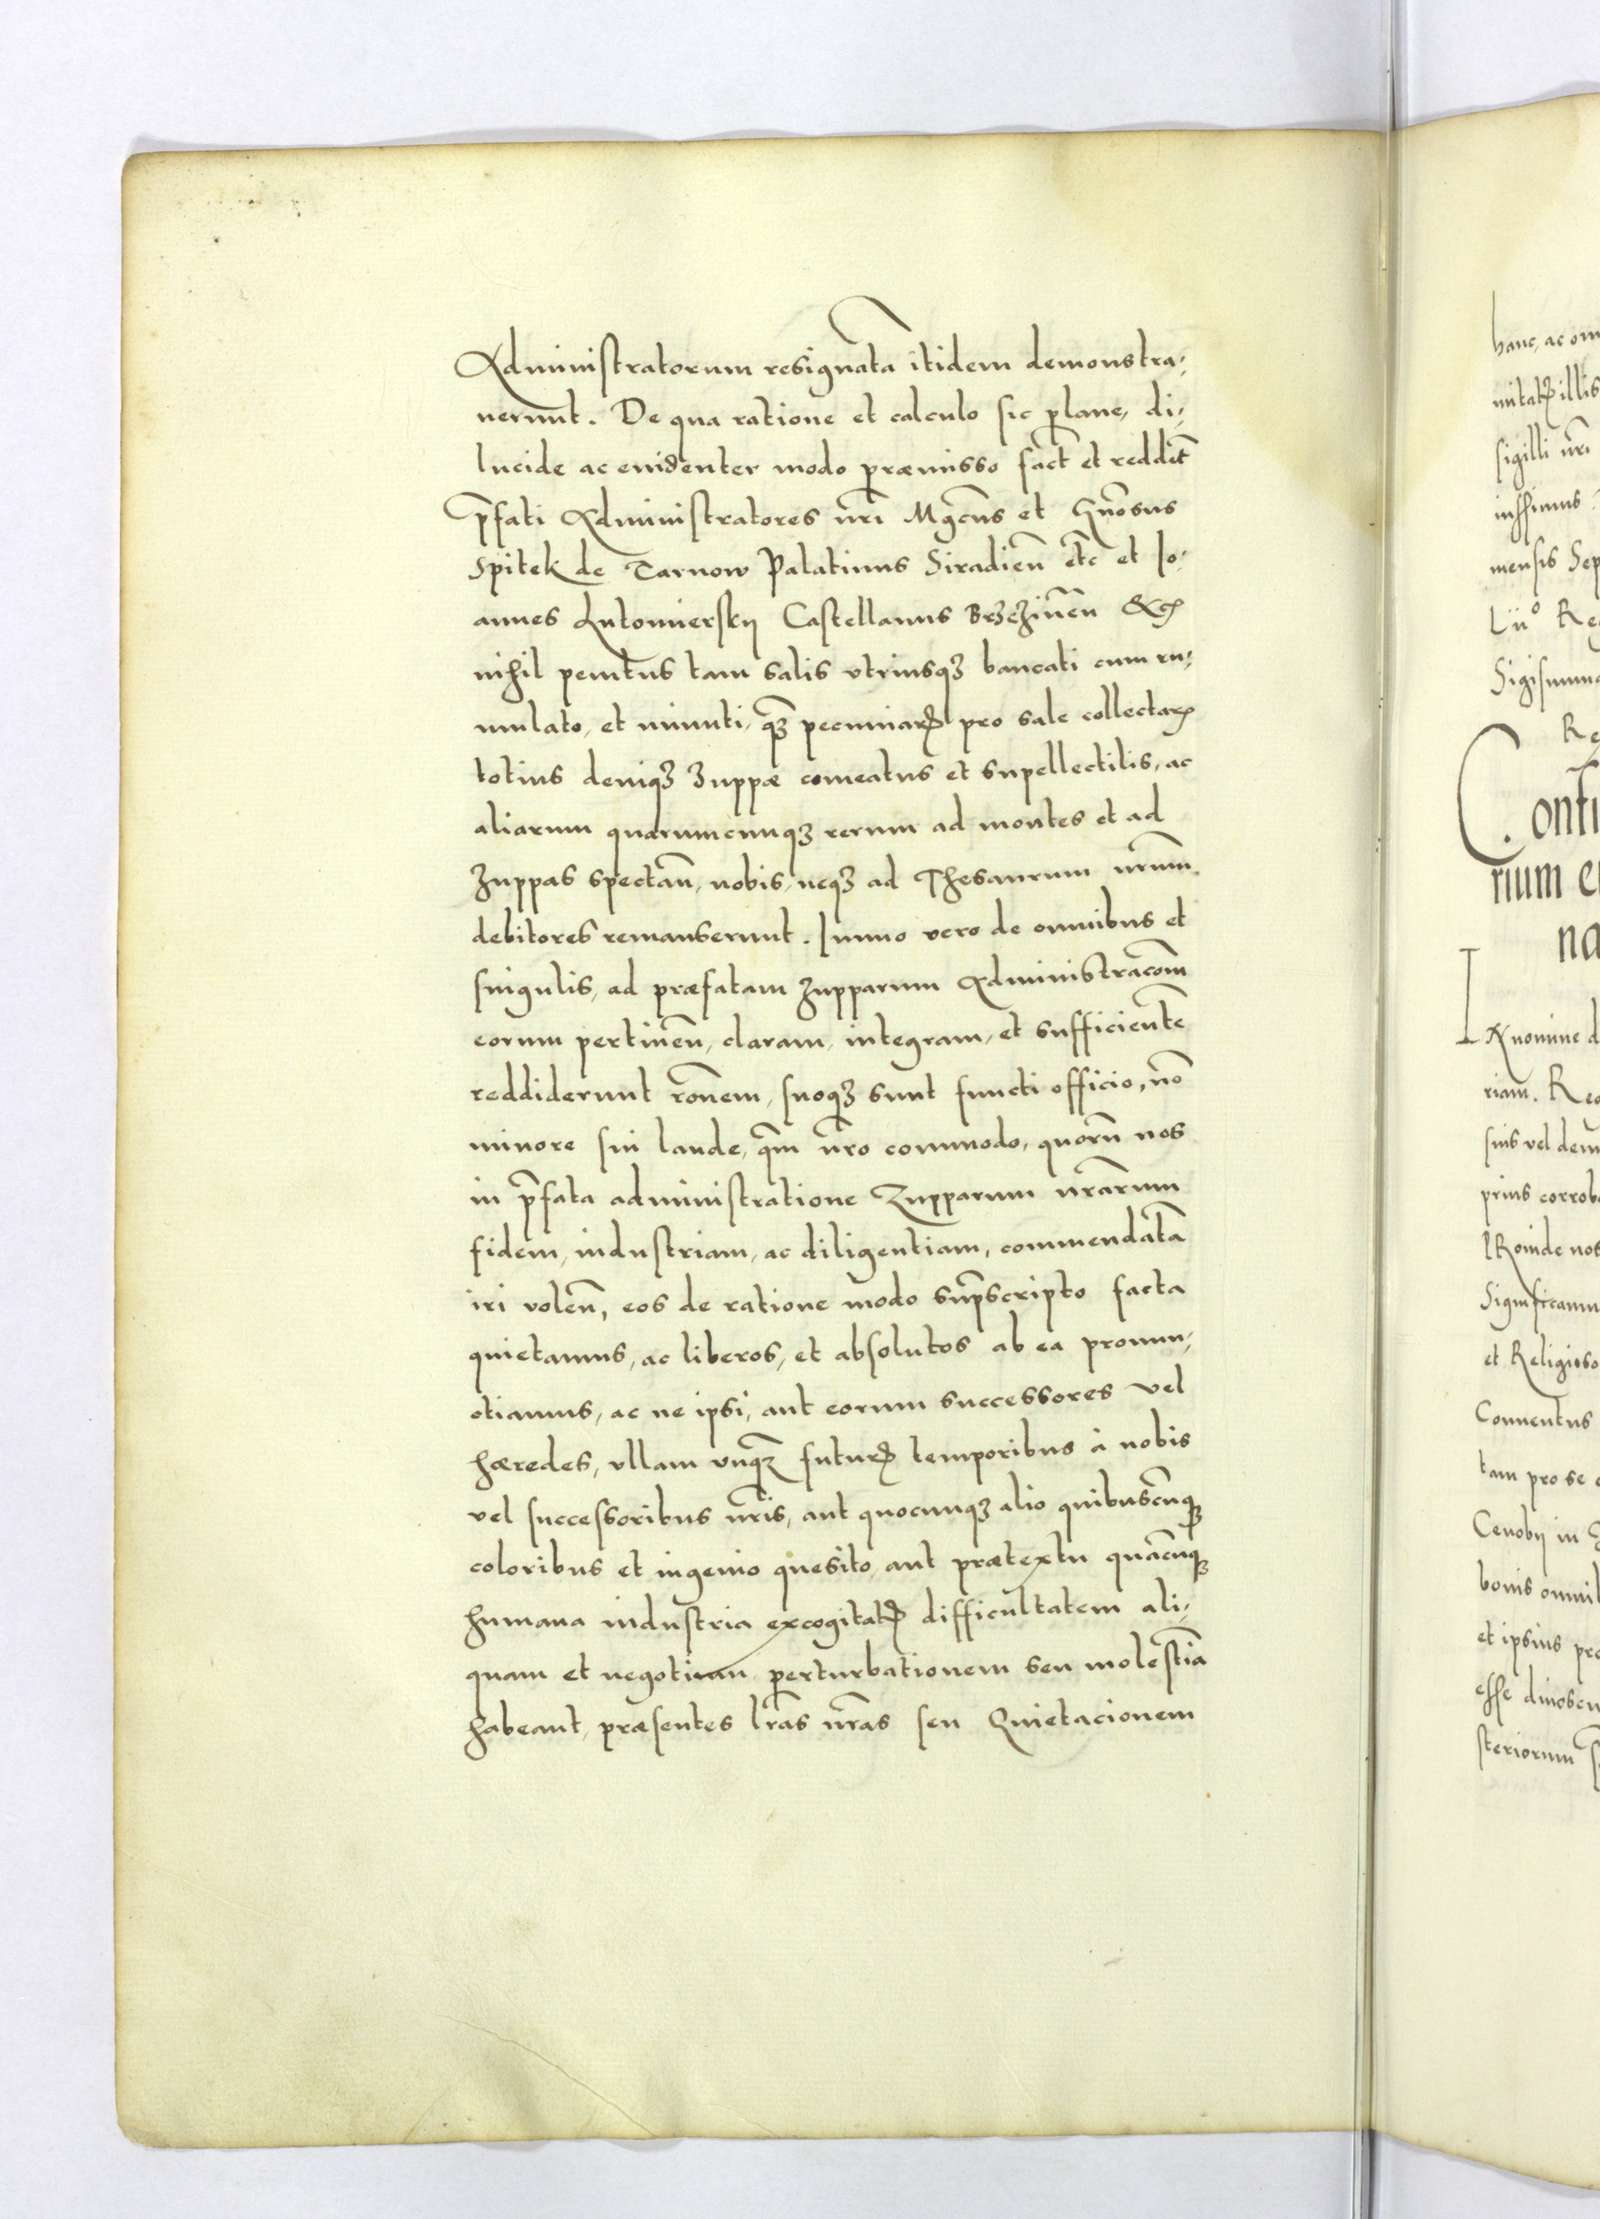 Administratorum resignata itidem demonstra-
uerunt. De qua ratione et calculo sic plane, di-
lucide ac euidenter modo præmisso fact̃ et reddit̃
p̃fati Administratores nr̃i Mgc̃us et Gn̄osus
Spitek de Tarnow Palatinus Siradieñ etc̃ et Io-
annes Lutomierskij Castellanus Brzezineñ &c
nihil penitus tam salis vtriusqꝫ bancati cum ru-
mulato, et minuti, qꝫ pecuniarꝝ pro sale collectarꝝ
totius deniqꝫ Zuppæ comeatus et supellectilis, ac
aliarum quarumcunqꝫ rerum ad montes et ad
Zuppas spectañ, nobis, neqꝫ ad Thesaurum nr̃um
debitores remanserunt. Immo vero de omnibus et
singulis, ad præfatam Zupparum Administracõm
eorum pertineñ, claram, integram, et sufficientẽ
reddiderunt rõnem, suoqꝫ sunt functi officio, nõ
minore sui laude, qm̃ nr̃o commodo, quorũ nos
in p̃fata administratione Zupparum nr̃arum
fidem, industriam, ac diligentiam, commendatã
iri voleñ, eos de ratione modo sup̃scripto facta
quietamus, ac liberos, et absolutos ab ea pronun-
ctiamus, ac ne ipsi, aut eorum successores vel
hæredes, vllam vnqꝫ futurꝝ temporibus à nobis
vel successoribus nr̃is, aut quocunqꝫ alio quibuscũqꝫ
coloribus et ingenio quesito, aut prætextu quãcũqꝫ
humana industria excogitatꝝ difficultatem ali-
quam et negotium perturbationem seu molestiã
habeant, præsentes lr̃as nr̃as seu Quietacionem
hanc, ac om
illis
sigilli nr̃i
mensis Sep
Lii° Re
Sigismun
Re
Confi
rium e
na
IN nomine d
riam. Re
suis vel dem
prius corrob
PRoinde nos
Significamu
et Religioso
Conuentus
tam pro se
Cenobij in
bonis omnib
et ipsius pre
esse dinoscu
steriorum